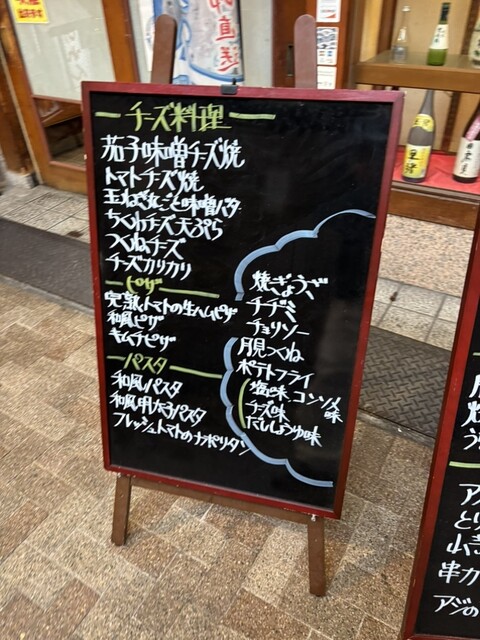 チーズ料理
茄子味噌チーズ焼
トマトチーズ焼
玉ねぎ丸ごと味噌バタ
ちくわチーズ天ぷら
つくねチーズ
チーズカリカリ
ピザ
完熟トマトの生ハムピザ
和風ピザ
キムチピザ
パスタ
和風パスタ
和風明太子パスタ
フレッシュトマトのナポリタン
焼ぎょうざ
チヂミ
チョリソー
月見つくね
ポテトフライ
塩味、コンソメ味
チーズ味
だししょうゆ味
直送
アジの
串カ
とり